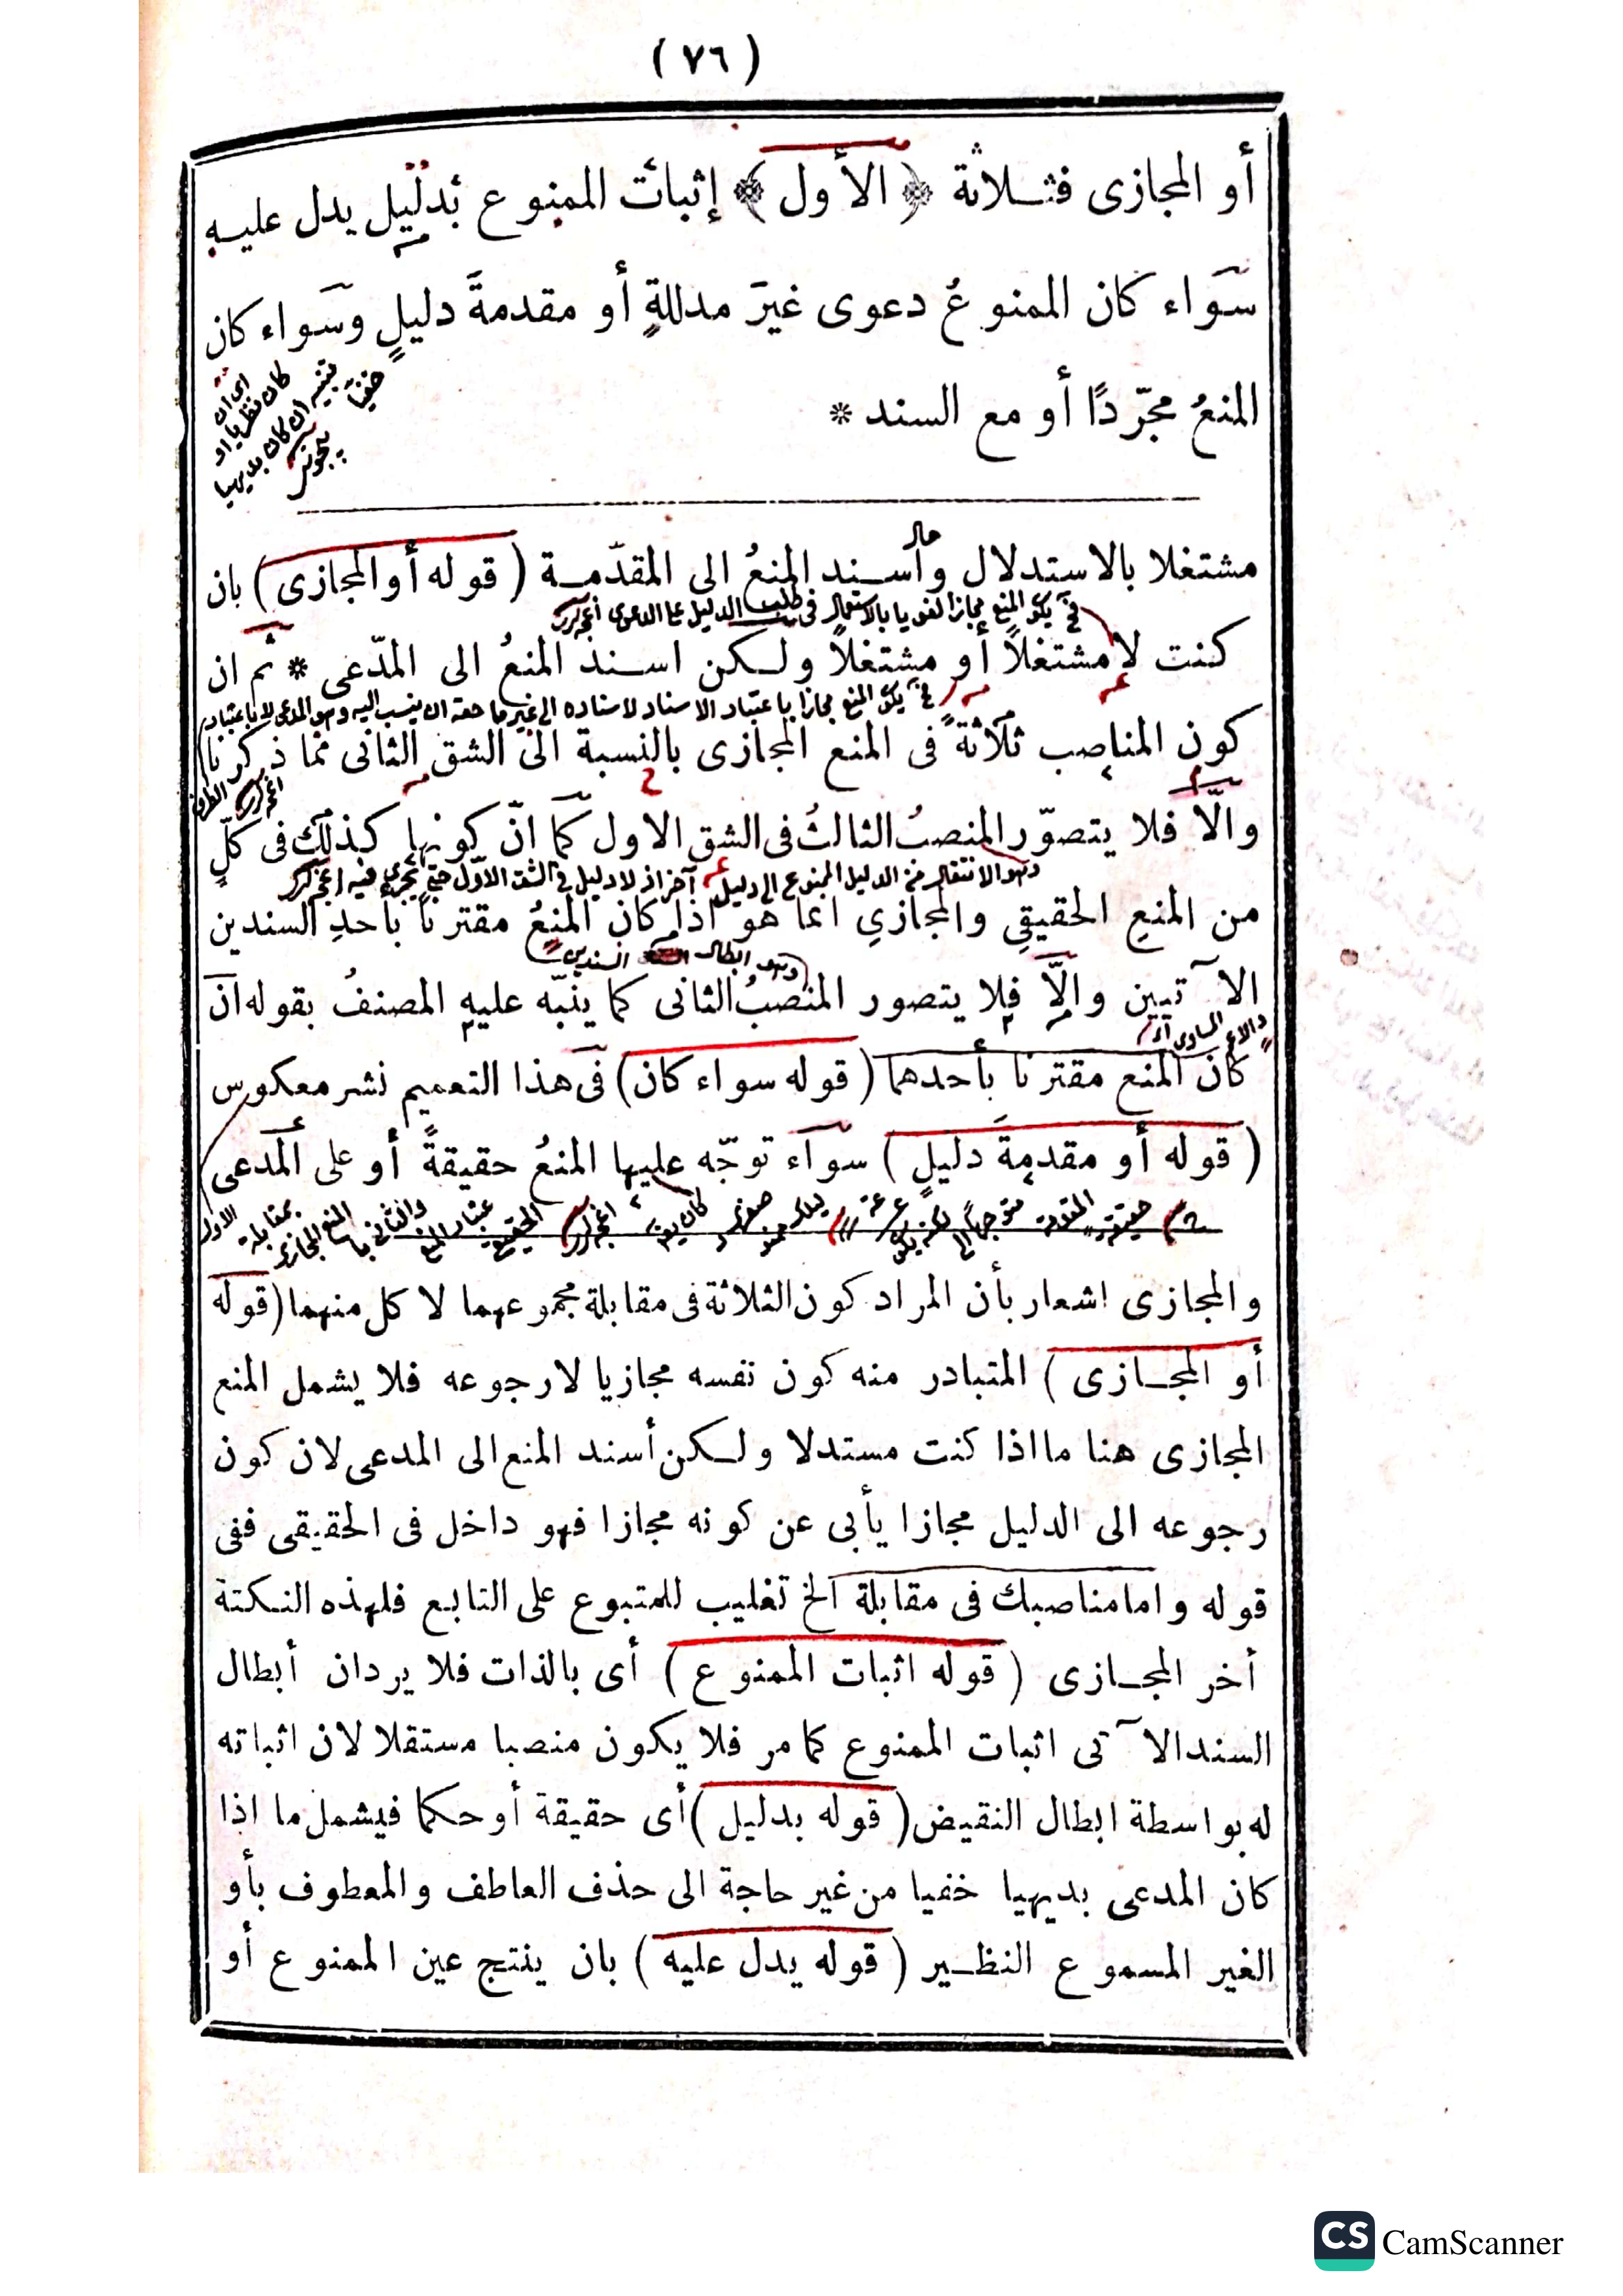 ( ٧٦ )
أو المجازى فثلاثة ﴿ الأول ﴾ إثبات الممنوع بدليل يدل عليه
سَواء كان الممنوعُ دعوى غيرَ مدللةٍ أو مقدمةَ دليلٍ وسَواء كان
المنعُ مجرّدًا أو مع السند *
اى ان
كان نظريا او
تنبيه ان كان بديهيا
خفيا
مشتغلا بالاستدلال وأسند المنعُ الى المقدّمة ( قوله أو المجازى ) بان
حال
فح يكون المنع مجازا لغويا بالاستعمال فى طلب الدليل على الدعوى
كنت لا مشتغلاً أو مشتغلاً ولكن اسند المنعُ الى المدّعى * ثم ان
فح يكون المنع مجازا باعتبار الاسناد لاسناده الى غير ما حقه ان ينسب اليه وهو المدعى
كون المناصب ثلاثةً فى المنع المجازى بالنسبة الى الشق الثانى مما ذكرنا
والّا فلا يتصوّر المنصبُ الثالثُ فى الشق الاول كما انّ كونها كذلك فى كلّ
وهو الانتقال من الدليل الممنوع الى دليل آخر اذ لا دليل فى الشق الاوّل حتى يجرى فيه
من المنعِ الحقيقِي والمجازيِ انما هو اذا كان المنعُ مقترنا بأحدِ السندين
وهو ابطال السندين
الآتيين والّا فلا يتصور المنصبُ الثانى كما ينبّه عليه المصنفُ بقوله ان
كان المنع مقترنا بأحدهما ( قوله سواء كان ) فى هذا التعميم نشر معكوس
( قوله أو مقدمةَ دليلٍ ) سوآء توجّه عليها المنعُ حقيقةً أو على المدعى
والمجازى اشعار بأن المراد كون الثلاثة فى مقابلة مجموعهما لا كل منهما ( قوله
أو المجازى ) المتبادر منه كون نفسه مجازيا لا رجوعه فلا يشمل المنع
المجازى هنا ما اذا كنت مستدلا ولكن أسند المنع الى المدعى لان كون
رجوعه الى الدليل مجازا يأبى عن كونه مجازا فهو داخل فى الحقيقى ففى
قوله واما مناصبك فى مقابلة الخ تغليب للمتبوع على التابع فلهذه النكتة
أخر المجازى ( قوله اثبات الممنوع ) أى بالذات فلا يرد ان أبطال
السند الآتى اثبات الممنوع كما مر فلا يكون منصبا مستقلا لان اثباته
له بواسطة ابطال النقيض ( قوله بدليل ) أى حقيقة أو حكما فيشمل ما اذا
كان المدعى بديهيا خفيا من غير حاجة الى حذف العاطف والمعطوف بأو
الغير المسموع النظير ( قوله يدل عليه ) بان ينتج عين الممنوع أو
CS CamScanner